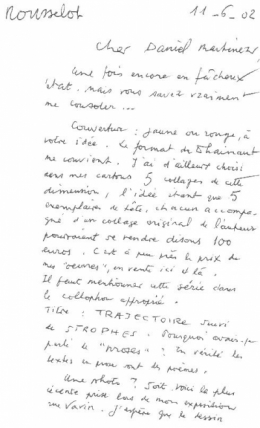 Rousselot 11-6-02
Cher Daniel Martinez,
Une fois encore en fâcheux
état. Mais vous savez vraiment
me consoler ...
Couverture : jaune ou rouge, à
votre idée. Le format du Chainant
me convient. J'ai d'ailleurs choisi
dans mes cartons 5 collages de cette
dimension, l'idée étant que 5
exemplaires de tête, chacun accompa-
gné d'un collage original de l'auteur
pourraient se vendre disons 100
euros. C'est à peu près le prix de
mes "oeuvres", en vente ici et là.
Il faut mentionner cette série dans
le collophon approprié.
Titre : TRAJECTOIRE suivi
de STROPHES. Pourquoi avais-je
parlé de "proses" ? En vérité les
textes en prose ont des poèmes.
Une photo ? Soit. Voici la plus
récente prise lors de mon exposition
rue Vavin. J'espère que le dessin